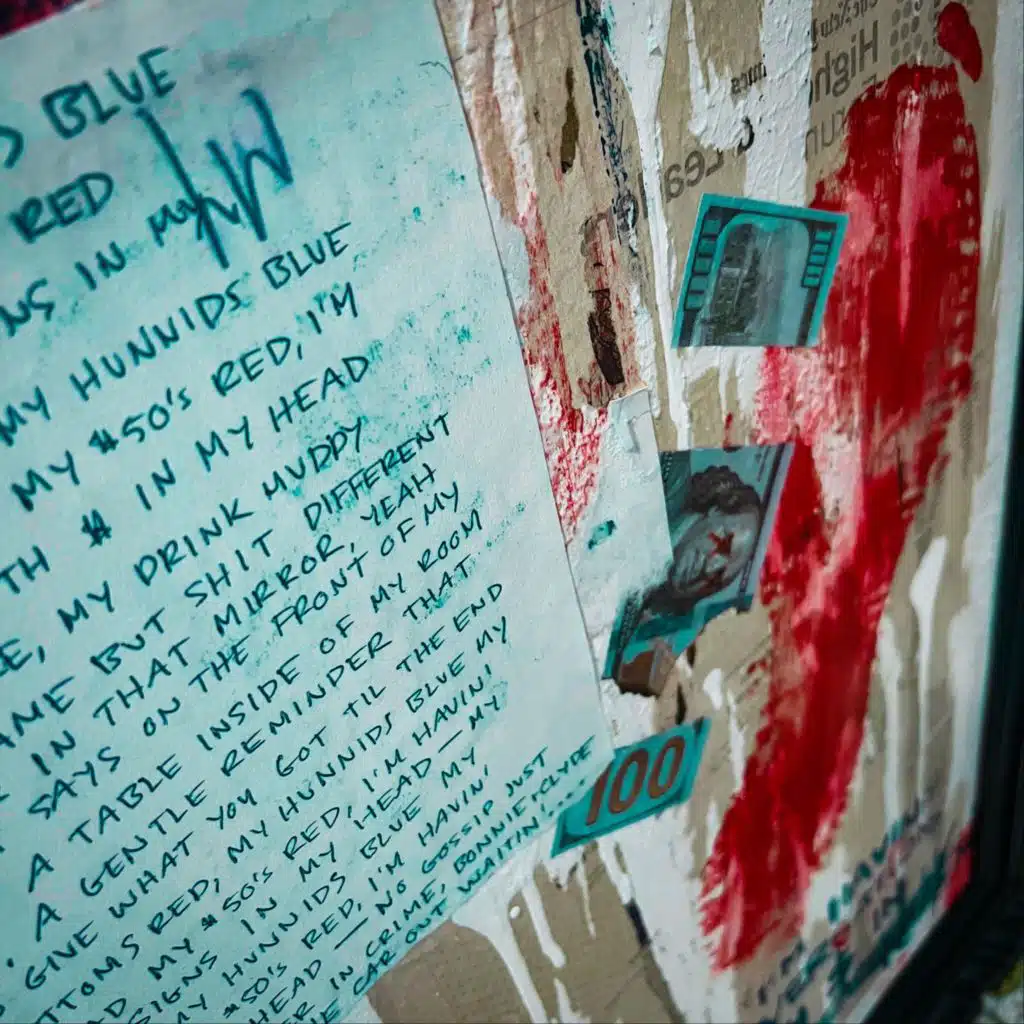 BLUE
RED
NS IN MY
MY HUNNIDS BLUE
MY $50's RED, I'M
TH $ IN MY HEAD
E, MY DRINK MUDDY
AME BUT SHIT DIFFERENT
IN THAT MIRROR, YEAH
SAYS ON THE FRONT OF MY
A TABLE INSIDE OF MY ROOM
A GENTLE REMINDER THAT
GIVE WHAT YOU GOT TIL THE END
TTOMS RED, MY HUNNIDS BLUE MY
MY $50's RED, I'M HAVIN'
SIGNS IN MY HEAD — MY
MY HUNNIDS BLUE MY
$50's RED, I'M HAVIN'
HEAD — NO GOSSIP JUST
ER IN CRIME, BONNIE+CLYDE
E CAR OUT WAITIN'....
High
100
HAVIN
IN